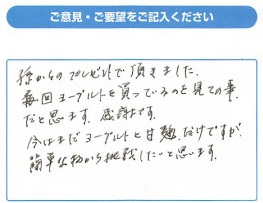 ご意見・ご要望をご記入ください
孫からのプレゼントで頂きました。
毎回ヨーグルトを買っているのを見ての事
だと思います。感謝です。
今はまだヨーグルトと甘麹だけですが、
簡単な物から挑戦したいと思います。